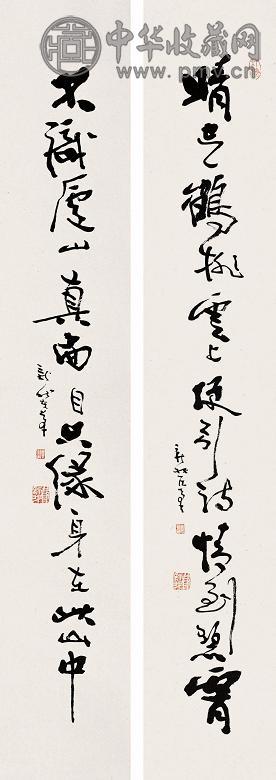 中华收藏网
www.pmv.cn
晴空一鶴排雲上便引詩情到碧霄
不識廬山真面目只緣身在此山中